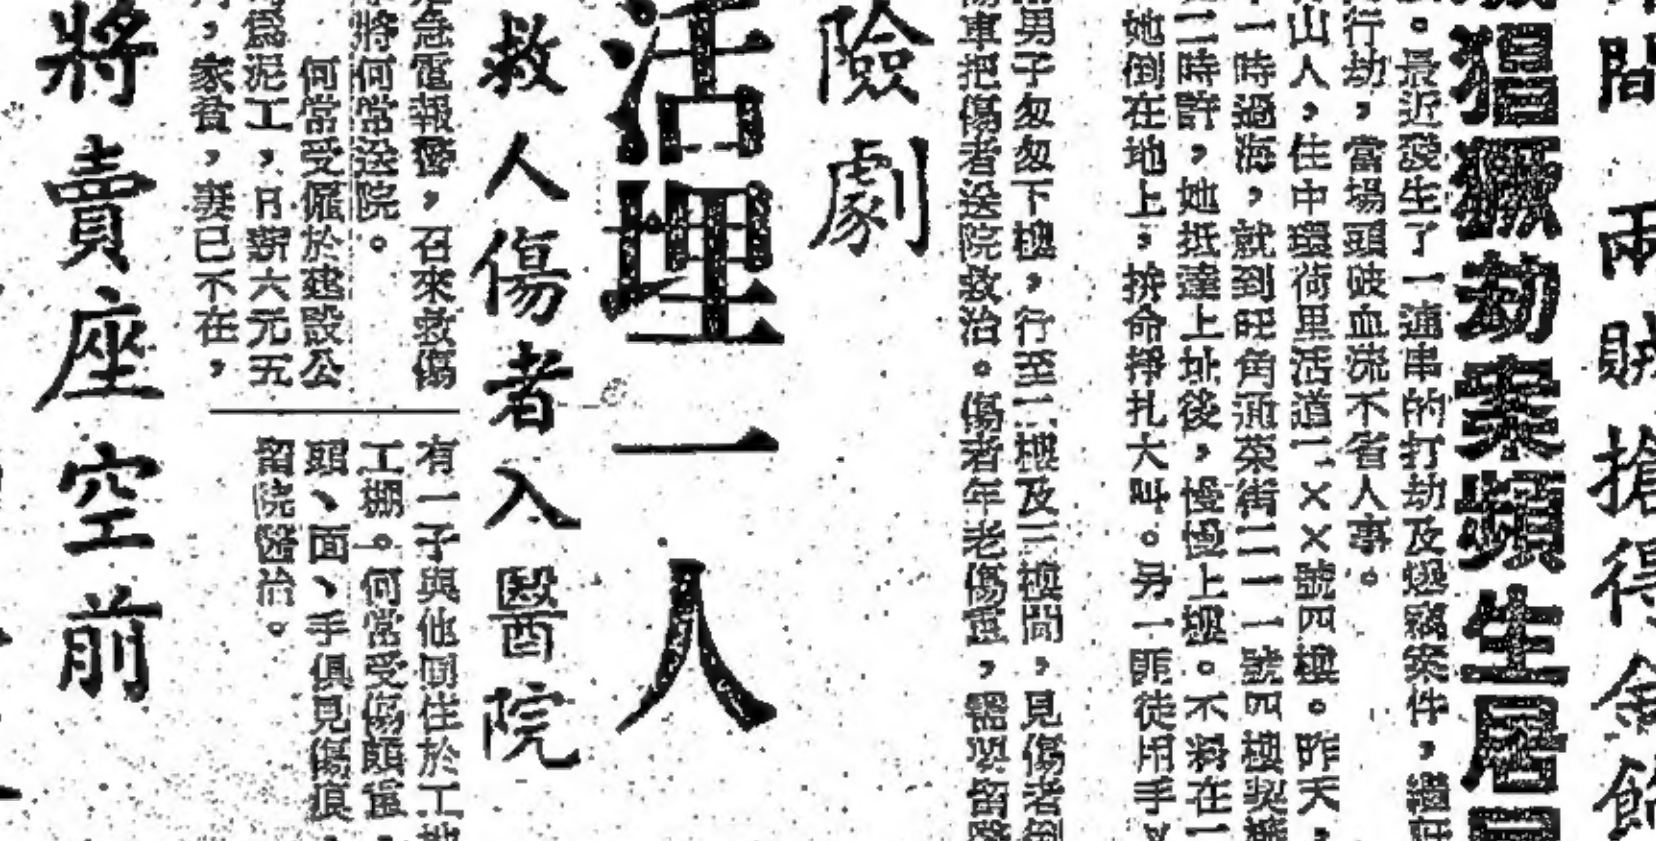 間兩賊搶得金飾
猖獗劫案頻生居
。最近發生了一連串的打劫及爆竊案件，繼
行劫，當場頭破血流不省人事。
山人，住中環荷里活道一××號四樓。昨天，
一時過海，就到旺角通菜街二一一號四樓契
二時許，她抵達上址後，慢慢上樓。不料在一
她倒在地上，拚命掙扎大叫。另一匪徒用手
男子匆匆下樓，行至二樓及三樓間，見傷者倒
車把傷者送院救治。傷者年老傷重，需要留醫
險劇
活埋一人
救人傷者入醫院
急電報警，召來救傷
將何常送院。
何常受僱於建設公
為泥工，月薪六元五
，家貧，妻已不在，
有一子與他同住於工地
工棚。何常受傷頗重，
頭、面、手俱見傷痕，
留院醫治。
將賣座空前